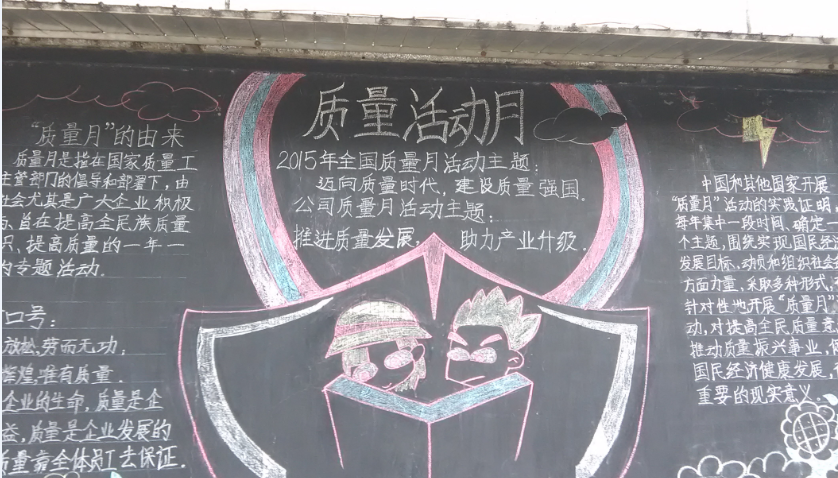 质量活动月
2015年全国质量月活动主题：
迈向质量时代，建设质量强国。
公司质量月活动主题：
推进质量发展， 助力产业升级．
“质量月”的由来
质量月是指在国家质量工
主管部门的倡导和部署下，由
社会尤其是广大企业积极
旨在提高全民族质量
识、提高质量的一年一
的专题活动．
口号：
放松，劳而无功；
辉煌，唯有质量．
企业的生命，质量是企
益，质量是企业发展的
质量靠全体员工去保证．
中国和其他国家开展
“质量月”活动的实践证明，
每年集中一段时间、确定一
个主题，围绕实现国民经济
发展目标、动员和组织社会各
方面力量，采取多种形式，
针对性地开展“质量月”
动，对提高全民质量意
推动质量振兴事业，
国民经济健康发展，
重要的现实意义